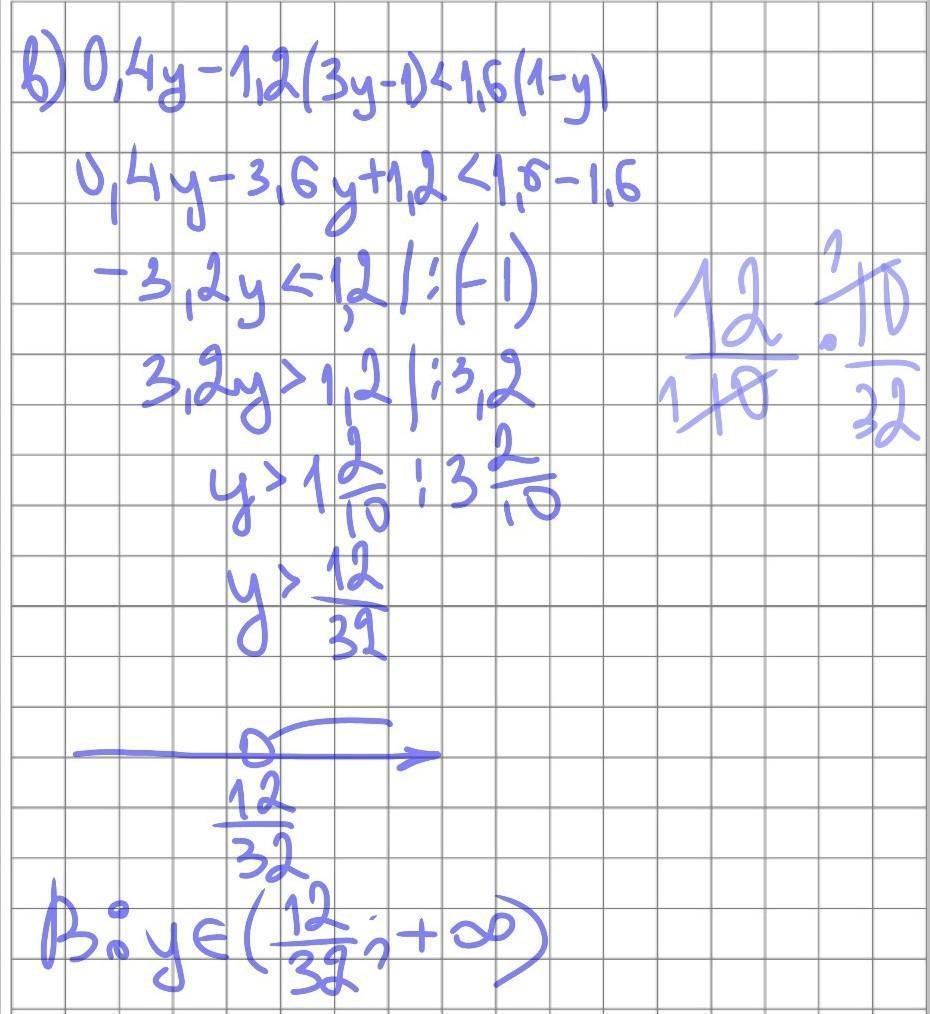 в) 0,4y-1,2(3y-1)<1,6(1-y)
0,4y-3,6y+1,2<1,6-1,6
-3,2y<-1,2 | :(-1)
3,2y>1,2 | :3,2
y>1 2/10 : 3 2/10
12/10 · 10/32
1 1
y> 12/32
12/32
В: y∈(12/32; +∞)